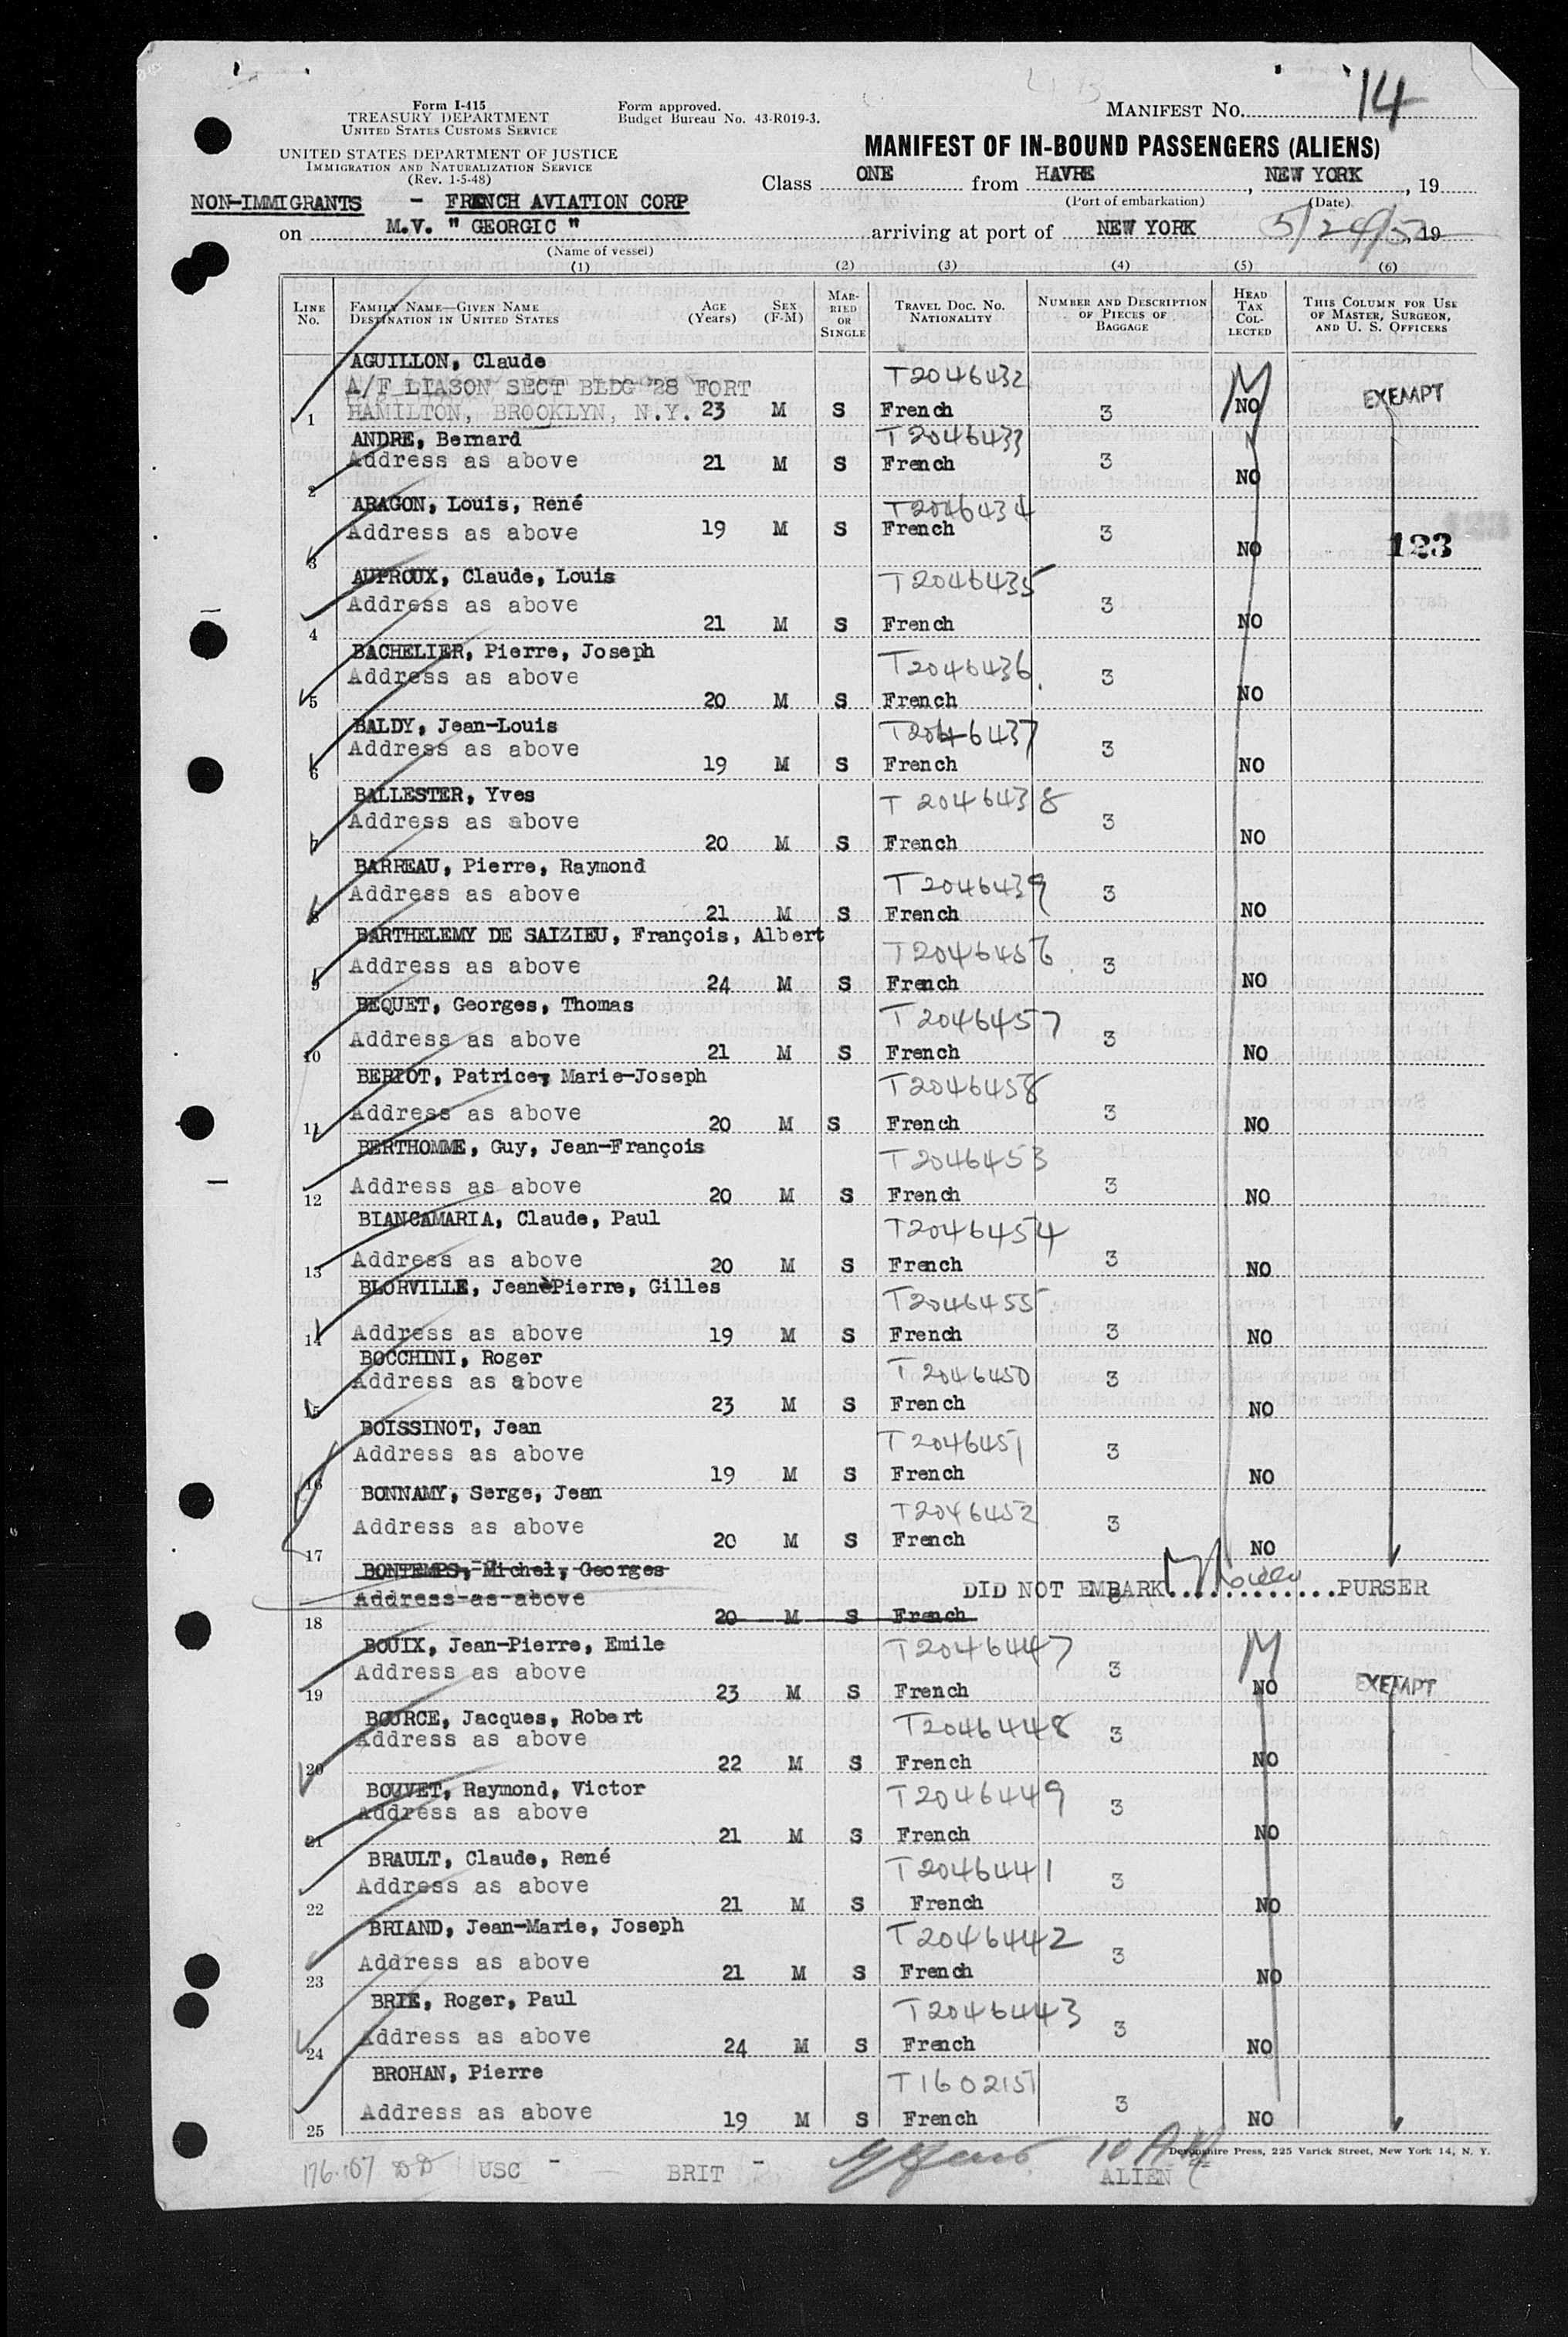 Form I-415
TREASURY DEPARTMENT
UNITED STATES CUSTOMS SERVICE
UNITED STATES DEPARTMENT OF JUSTICE
IMMIGRATION AND NATURALIZATION SERVICE
(Rev. 1-5-48)
Form approved.
Budget Bureau No. 43-R019-3.
MANIFEST NO. 14
MANIFEST OF IN-BOUND PASSENGERS (ALIENS)
Class ONE from HAVRE, NEW YORK, 19
(Port of embarkation) (Date)
NON-IMMIGRANTS - FRENCH AVIATION CORP
on M.V. " GEORGIC " arriving at port of NEW YORK 5/24/52, 19
(Name of vessel)
(1) (2) (3) (4) (5) (6)
LINE NO. FAMILY NAME—GIVEN NAME DESTINATION IN UNITED STATES AGE (Years) SEX (F-M) MARRIED OR SINGLE TRAVEL DOC. NO. NATIONALITY NUMBER AND DESCRIPTION OF PIECES OF BAGGAGE HEAD TAX COLLECTED THIS COLUMN FOR USE OF MASTER, SURGEON, AND U. S. OFFICERS
AGUILLON, Claude T2046432
A/F LIASON SECT BLDG 28 FORT EXEMPT
1 HAMILTON, BROOKLYN, N.Y. 23 M S French 3 NO
ANDRE, Bernard T2046433
2 Address as above 21 M S French 3 NO
ARAGON, Louis, René T2046434
3 Address as above 19 M S French 3 NO 123
AUPROUX, Claude, Louis T2046435
4 Address as above 21 M S French 3 NO
BACHELIER, Pierre, Joseph T2046436
5 Address as above 20 M S French 3 NO
BALDY, Jean-Louis T2046437
6 Address as above 19 M S French 3 NO
BALLESTER, Yves T2046438
7 Address as above 20 M S French 3 NO
BARREAU, Pierre, Raymond T2046439
8 Address as above 21 M S French 3 NO
BARTHELEMY DE SAIZIEU, François, Albert T2046456
9 Address as above 24 M S French 3 NO
BEQUET, Georges, Thomas T2046457
10 Address as above 21 M S French 3 NO
BERIOT, Patrice, Marie-Joseph T2046458
11 Address as above 20 M S French 3 NO
BERTHOMME, Guy, Jean-François T2046453
12 Address as above 20 M S French 3 NO
BIANCAMARIA, Claude, Paul T2046454
13 Address as above 20 M S French 3 NO
BLORVILLE, Jean-Pierre, Gilles T2046455
14 Address as above 19 M S French 3 NO
BOCCHINI, Roger T2046450
15 Address as above 23 M S French 3 NO
BOISSINOT, Jean T2046451
16 Address as above 19 M S French 3 NO
BONNAMY, Serge, Jean T2046452
17 Address as above 20 M S French 3 NO
BONTEMPS, Michel, Georges
Address as above DID NOT EMBARK.............PURSER
18 20 M S French
BOUIX, Jean-Pierre, Emile T2046447
19 Address as above 23 M S French 3 NO EXEMPT
BOURCE, Jacques, Robert T2046448
20 Address as above 22 M S French 3 NO
BOUVET, Raymond, Victor T2046449
21 Address as above 21 M S French 3 NO
BRAULT, Claude, René T2046441
22 Address as above 21 M S French 3 NO
BRIAND, Jean-Marie, Joseph T2046442
23 Address as above 21 M S French 3 NO
BRIE, Roger, Paul T2046443
24 Address as above 24 M S French 3 NO
BROHAN, Pierre T1602151
25 Address as above 19 M S French 3 NO
Devonshire Press, 225 Varick Street, New York 14, N. Y.
176.107 USC - BRIT - 10 AM ALIEN